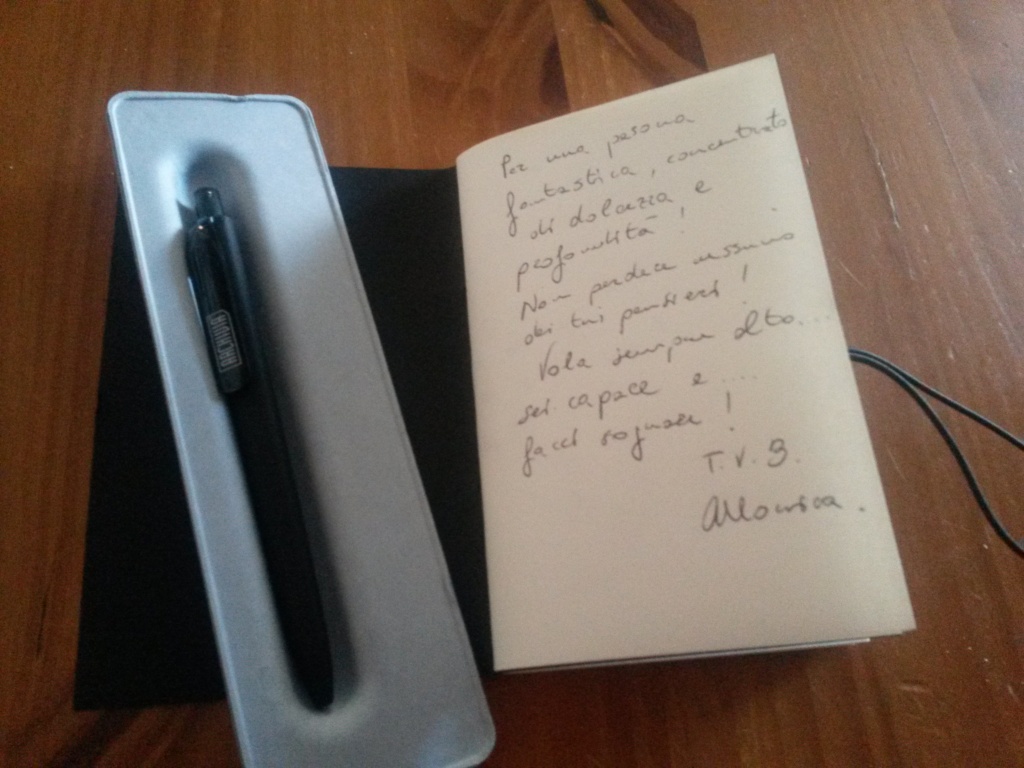 Per una persona
fantastica, concentrato
di dolcezza e
profondità!
Non perdere nessuno
dei tuoi pensieri!
Vola sempre alto...
sei capace e ....
facci sognare!
T.V.B.